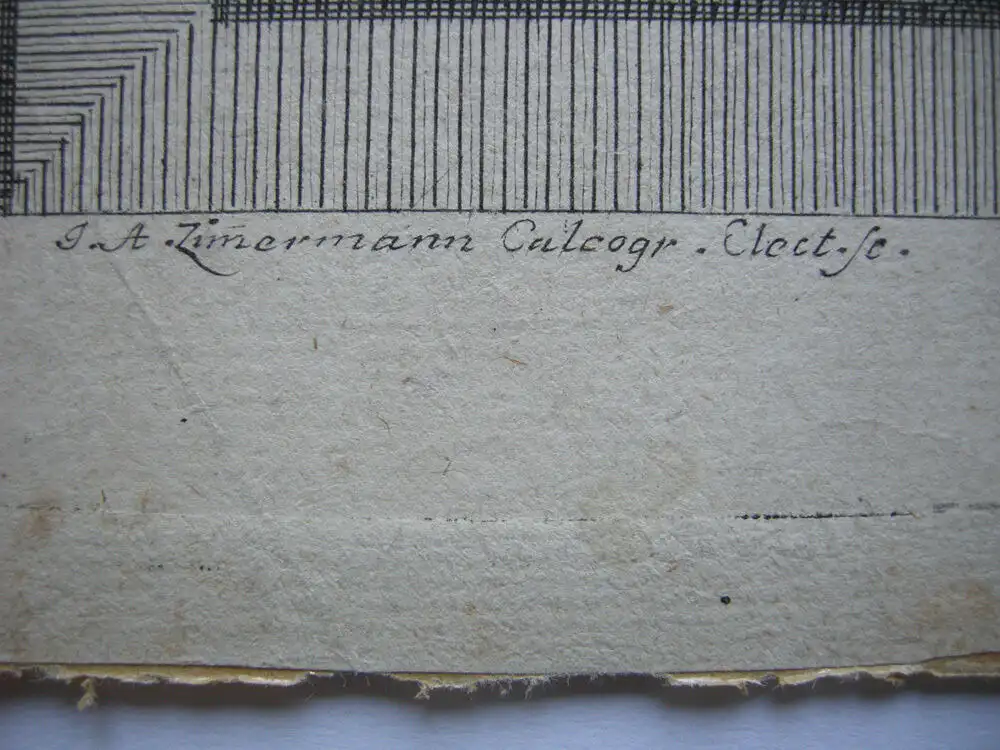 J. A. Zim̄ermann Calcogr. Elect. sc.